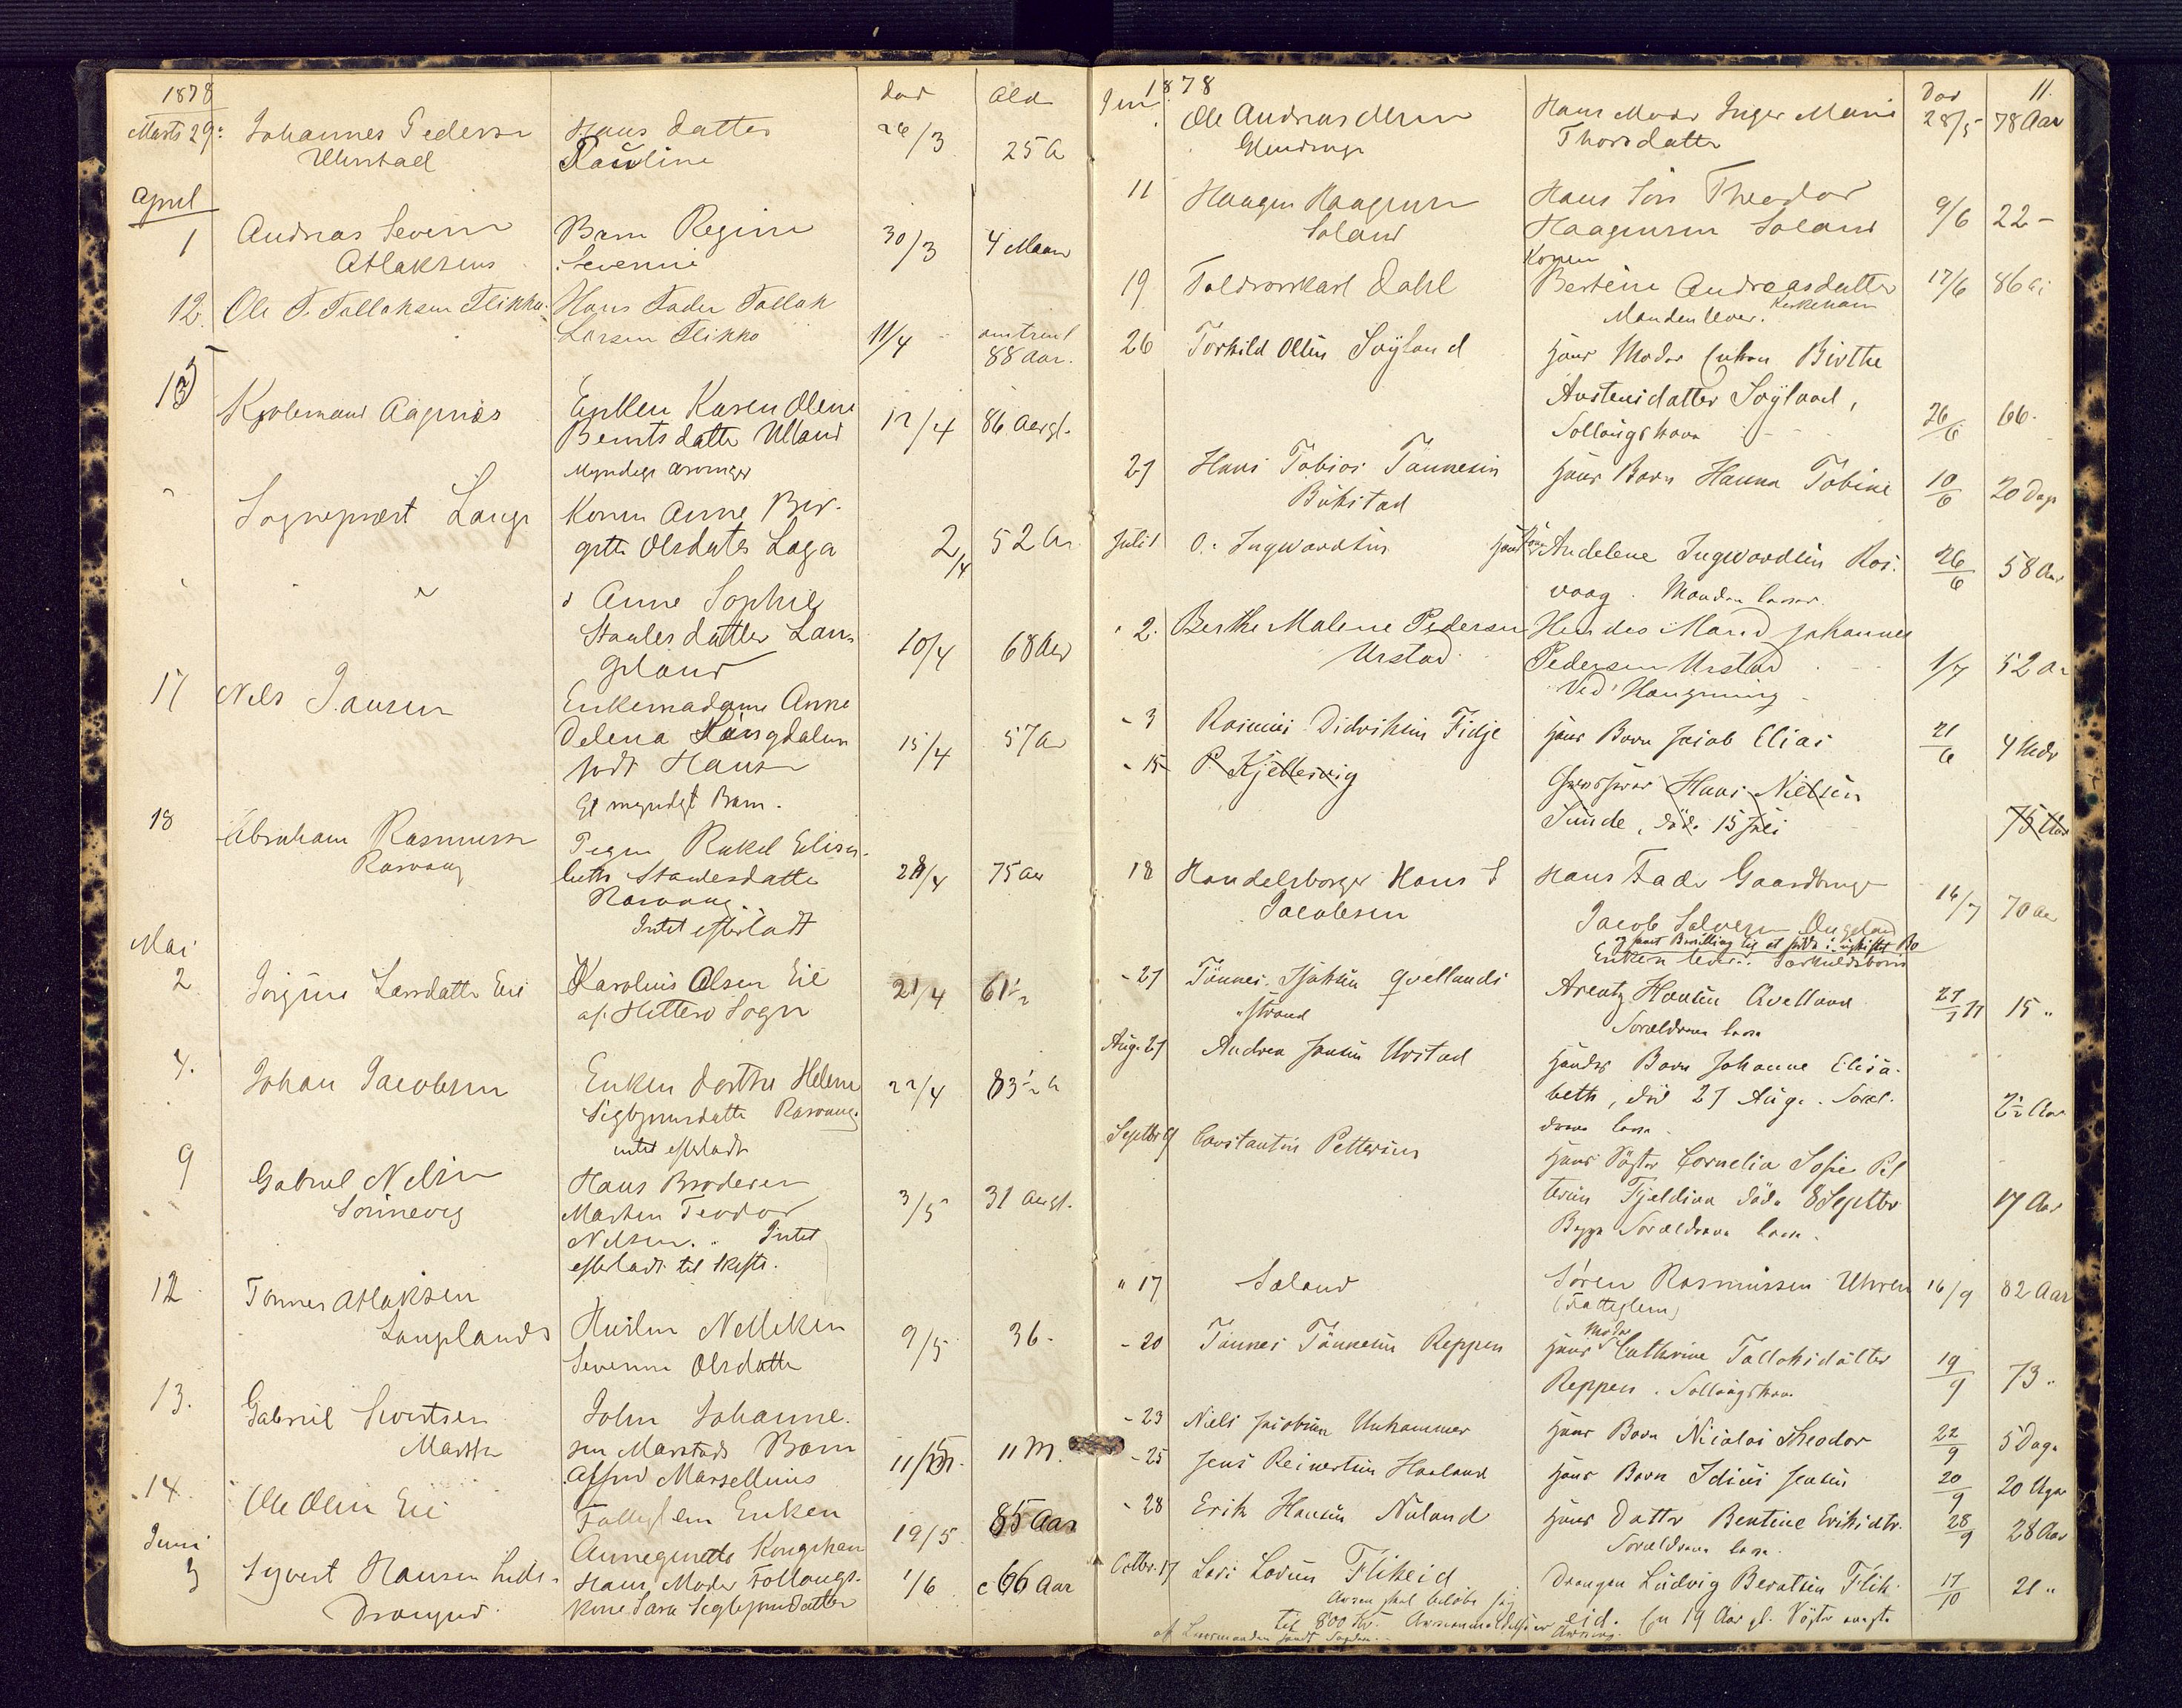 1878 død Ald
Marts 29. Johannes Pedersen Hans datter 26/3
Ulvstad Pauline 25 A
April
1 Andreas Severin Barn Regine 30/3 4 Maan
Atlaksens Severine
12. Ole T. Tallaksen Flikke Hans Fader Tallak
Larsen Flikke 11/4 omtrent
88 Aar.
15 Enken Karen Olene
Aagenæs Berntsdatter Ulland 12/4 86 Aar gl.
Myndige arvinger
" Sogneprest Lange Konen Anne Bir-
gitte Olsdatter Laga 2/4 52 Aar
" " Anne Sophie
Staalesdatter Lan- 10/4 68 Aar
geland
17 Nels Jansen Enkemadame Anne
Delena 15/4 57 A
født Hansen
Et myndigt Barn.
18 Abraham Rasmussen Pigen Rakel Elisa-
Rasvaag beth Staalesdatter 28/4 75 Aar
Rasvaag.
Intet efterladt
Mai
2 Jørgine Larsdatter Eie Karolius Olsen Eie 21/4 61½
af Hitterø Sogn
4. Johan Jacobsen Enken Dorthe Helene 22/4 83½ A
Sigbjørnsdatter Rasvaag.
intet efterladt
9 Gabriel Nelsen Hans Broder
Sønnevig Marten Teodor 3/5 31 Aar gl.
Nelsen. Intet
efterladt til skifte.
12 Tønnes Atlaksen
Lauplands Hustru Nelleken 9/5 36 -
Severine Olsdatter
13. Gabriel Sivertsen John Johanne-
sen Marstads Barn 11/5 11 M.
Marsellius
14. Ole Olsen Eie Fattiglem Enken 19/5 85 Aar
Juni Kongshavn
3 Syvert Hansen Hans Moder Føllaugs- 1/6 c 66 Aar
Drangeid kone Sara Sigbjørnsdatter
1878 Død 11.
Juni Ole Andreas Olsen Hans Moder Inger Marie 28/5 78 Aar
Thorsdatter
11 Haagen Haagensen Hans Søn Theodor 9/6 22 -
Soland Haagensen Soland
Konen
19 Toldroerkarl Dahl Bertine Andreasdatter 17/6 86 A
Manden lever. Kirkehavn
26 Torkild Olsen Søyland Hans Moder Enken Birthe
Austensdatter Søyland, 26/6 66 -
Føllougskone
27 Hans Tobias Tønnesen Hans Barn Hanna Tobine 10/6 20 Dage
Bukstad
Juli 1 O. Ingwardsen Hans Kone Andelene Ingwardsen Ros- 26/6 58 Aar
vaag. Manden lever.
" 2. Berthe Malene Pedersen Hendes Mand Johannes
Urstad Pedersen Urstad 1/7 52 Aar
Ved Hængning
- 3 Rasmus Didriksen Fidje Hans Barn Jacob Elias 21/6 4 Mdr
- 15 P. Kjellesvig Hans Nielsen
Sunde, døde 15 Juli 75 Aar
18 Handelsborger Hans S Hans Fader Gaardbruger 16/7 70 Aar
Jacobsen Jacob Salvesen
og faaet Bevilling til at sidde i uskiftet Bo
Enken lever. Særkuldsbørn
- 27 Tønnes Isaksen Qvellands Arentz Hansen Qvelland 27/7 15 "
strand Foreldrene leve
Aug. 27 Andrea Jansen Urstad Hendes Barn Johanne Elisa-
beth, død 27 Aug. Forel- 2½ Aar
drene leve
Septbr 9 Constantin Pettersen Hans Søster Cornelia Sofie Pet
tersen døde 8 Septbr 17 Aar
Begge Foreldrene leve.
" 17 Søland Søren Rasmussen Uhren 16/9 82 Aar
(Fattiglem)
- 20 Tønnes Tønnesen Reppen Hans Moder Cathrine Tallaksdatter 19/9 73 "
Reppen. Føllougskone
- 23 Niels Jacobsen Unhammer Hans Barn Nicolai Theodor 22/9 5 Dage
- 25 Jens Reinertsen Haaland Hans Barn Jensen 20/9 20 Uger
- 28 Erik Hansen Nuland Hans Datter Bentine Eriksdtr. 28/9 28 Aar
Foreldrene leve.
Octbr. 17 Lars Larsen Flikeid Drengen Ludvig Berntsen Flik- 17/10 21 "
Arven skal beløbe sig eid. En 19 Aar gl. Søster eneste
til 800 Kr. Arveanmeldelse er Arving.
af Lensmanden